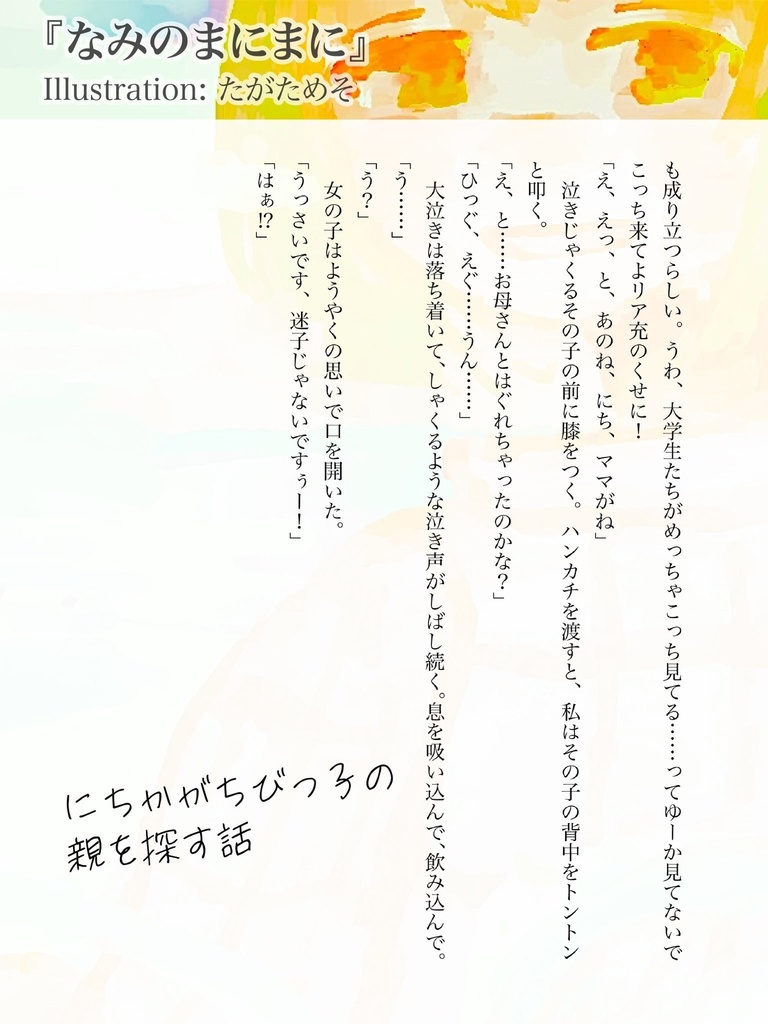 『なみのまにまに』
Illustration: たがためそ
も成り立つらしい。うわ、大学生たちがめっちゃこっち見てる……ってゆーか見てないで
こっち来てよリア充のくせに！
「え、えっ、と、あのね、にち、ママがね」
泣きじゃくるその子の前に膝をつく。ハンカチを渡すと、私はその子の背中をトントン
と叩く。
「え、と……お母さんとはぐれちゃったのかな？」
「ひっぐ、えぐ……うん……」
大泣きは落ち着いて、しゃくるような泣き声がしばし続く。息を吸い込んで、飲み込んで。
「う……」
「う？」
女の子はようやくの思いで口を開いた。
「うっさいです、迷子じゃないですぅー！」
「はぁ!?」
にちかがちびっ子の
親を探す話